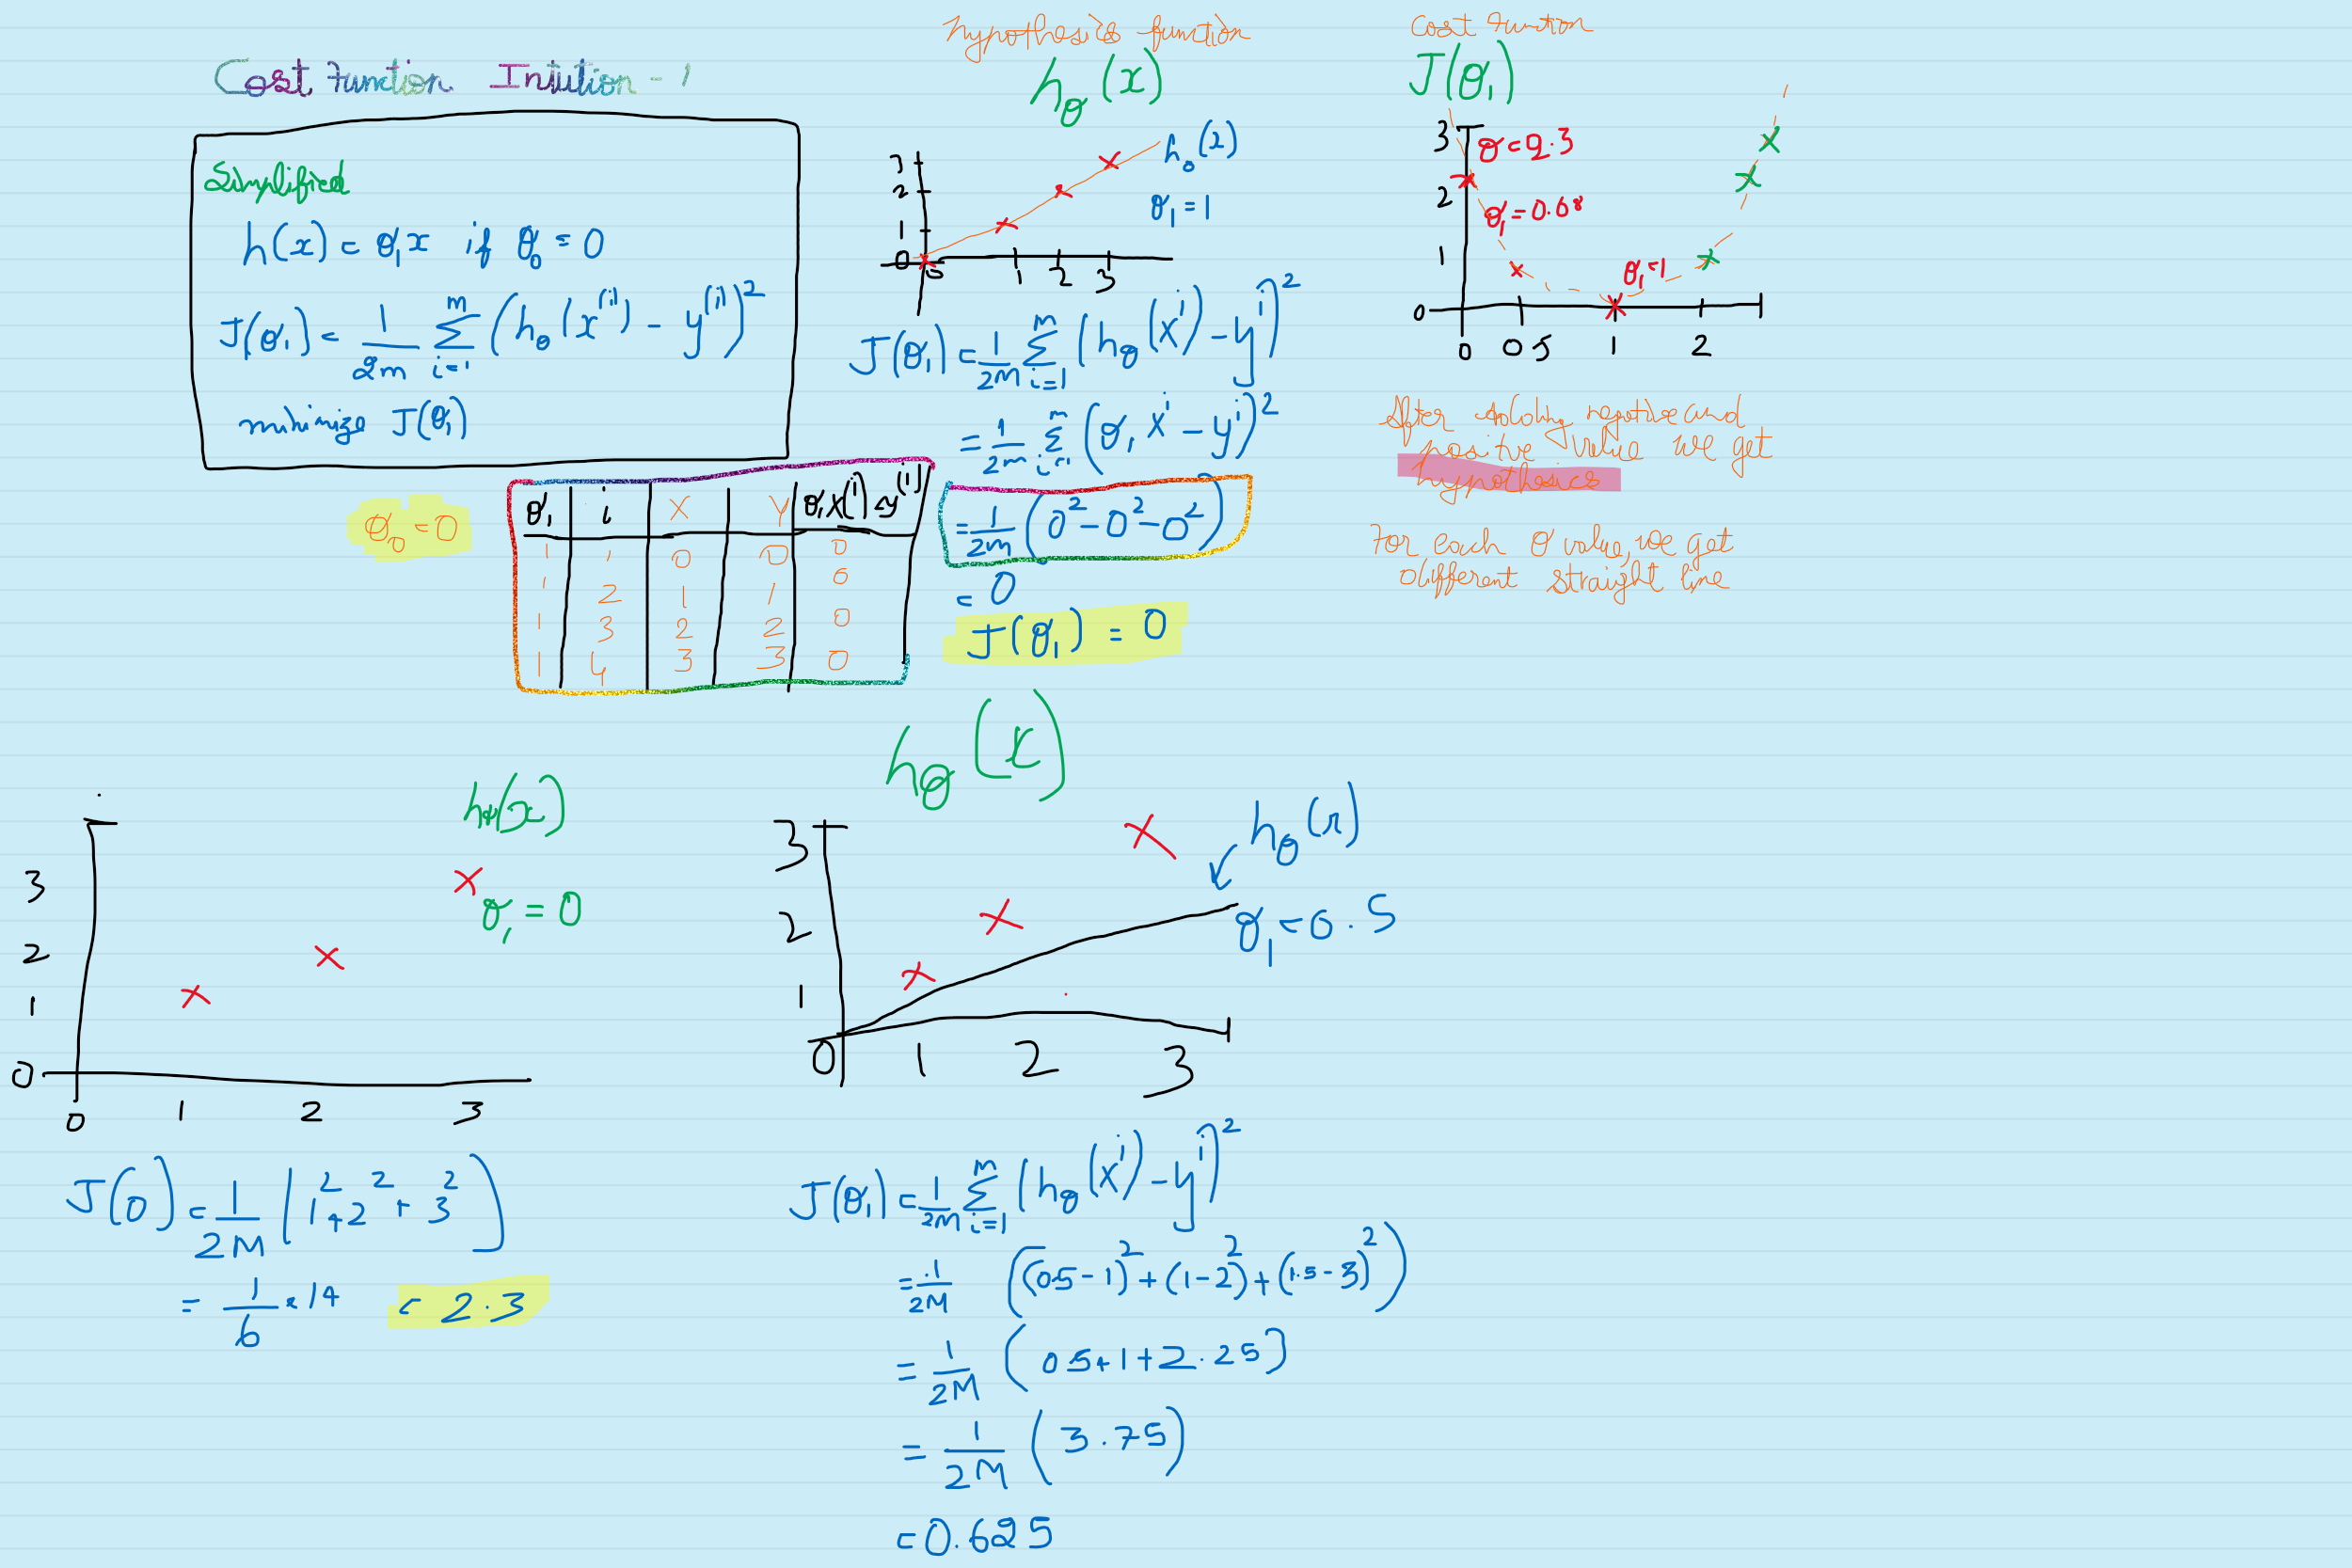 Cost Function Intution - 1
Simplified
h(x) = θ₁x if θ₀ = 0
J(θ₁) = 1/2m Σ_{i=1}^{m} (h_θ(x^(i)) - y^(i))²
minimize J(θ₁)
θ₀ = 0
θ₁ i X Y θ₁x(i) - y(i)
1 1 0 0 0
1 2 1 1 0
1 3 2 2 0
1 4 3 3 0
hypothesis function
h_θ(x)
3
2
1
0
0 1 2 3
θ₁ = 1
J(θ₁) = 1/2m Σ_{i=1}^{m} (h_θ(x^i) - y^i)²
= 1/2m Σ_{i=1}^{m} (θ₁ x^i - y^i)²
= 1/2m (0² - 0² - 0²)
= 0
J(θ₁) = 0
Cost Function
J(θ₁)
3 θ = 2.3
2 θ₁ = 0.68
1 θ₁ = 1
0
0 0 5 1 2
After solving negative and
positive value we get
hypothesis
For each θ value, we get
different straight line
h_θ(x)
θ₁ = 0
3
2
1
0
0 1 2 3
J(0) = 1/2M (1² + 2² + 3²)
= 1/6 × 14 = 2.3
h_θ(x)
3
2
1
0 1 2 3
h_θ(x)
θ₁ = 0.5
J(θ₁) = 1/2M Σ_{i=1}^{m} (h_θ(x^i) - y^i)²
= 1/2M ((0.5 - 1)² + (1 - 2)² + (1.5 - 3)²)
= 1/2M (0.5 + 1 + 2.25)
= 1/2M (3.75)
= 0.625